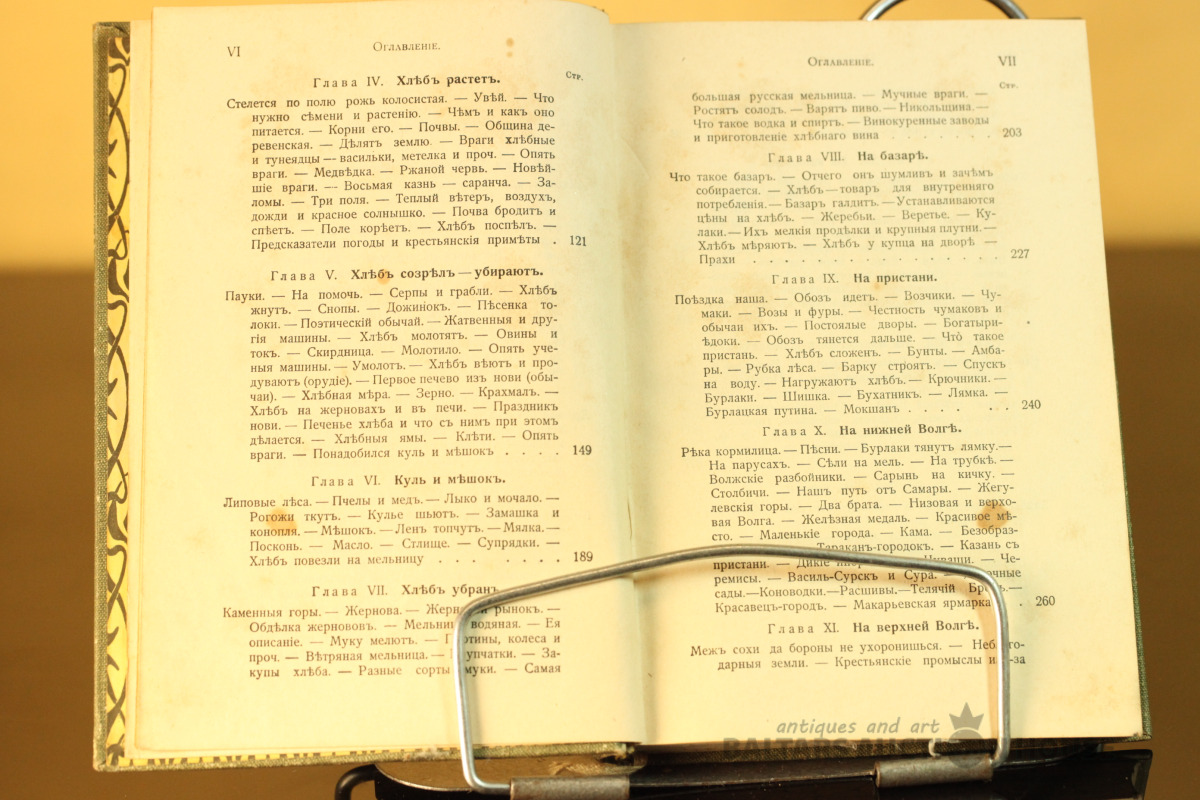 VI
Оглавленіе.
Стр.
Глава IV. Хлѣбъ растетъ.
Стелется по полю рожь колосистая. — Увѣй. — Что
нужно сѣмени и растенію. — Чѣмъ и какъ оно
питается. — Корни его. — Почвы. — Община де-
ревенская. — Дѣлятъ землю. — Враги хлѣбные
и тунеядцы — васильки, метелка и проч. — Опять
враги. — Медвѣдка. — Ржаной червь. — Новѣй-
шіе враги. — Восьмая казнь — саранча. — За-
ломы. — Три поля. — Теплый вѣтеръ, воздухъ,
дожди и красное солнышко. — Почва бродитъ и
спѣетъ. — Поле корѣетъ. — Хлѣбъ поспѣлъ. —
Предсказатели погоды и крестьянскія примѣты . 121
Глава V. Хлѣбъ созрѣлъ — убираютъ.
Пауки. — На помочь. — Серпы и грабли. — Хлѣбъ
жнутъ. — Снопы. — Дожинокъ. — Пѣсенка то-
локи. — Поэтическій обычай. — Жатвенныя и дру-
гія машины. — Хлѣбъ молотятъ. — Овины и
токъ. — Скирдница. — Молотило. — Опять уче-
ныя машины. — Умолотъ. — Хлѣбъ вѣютъ и про-
дуваютъ (орудіе). — Первое печево изъ нови (обы-
чаи). — Хлѣбная мѣра. — Зерно. — Крахмалъ. —
Хлѣбъ на жерновахъ и въ печи. — Праздникъ
нови. — Печенье хлѣба и что съ нимъ при этомъ
дѣлается. — Хлѣбныя ямы. — Клѣти. — Опять
враги. — Понадобился куль и мѣшокъ . . . . 149
Глава VI. Куль и мѣшокъ.
Липовые лѣса. — Пчелы и медъ. — Лыко и мочало. —
Рогожи ткутъ. — Кулье шьютъ. — Замашка и
конопля. — Мѣшокъ. — Ленъ топчутъ. — Мялка. —
Посконь. — Масло. — Стлище. — Супрядки. —
Хлѣбъ повезли на мельницу . . . . . . . 189
Глава VII. Хлѣбъ убранъ.
Каменныя горы. — Жернова. — рынокъ. —
Обдѣлка жернововъ. — водяная. — Ея
описаніе. — Муку мелютъ. — колеса и
проч. — Вѣтряная мельница. — — За-
купы хлѣба. — Разные сорты муки. — Самая
VII
Оглавленіе.
Стр.
большая русская мельница. — Мучные враги. —
Ростятъ солодъ. — Варятъ пиво. — Никольщина. —
Что такое водка и спиртъ. — Винокуренные заводы
и приготовленіе хлѣбнаго вина . . . . . . . 203
Глава VIII. На базарѣ.
Что такое базаръ. — Отчего онъ шумливъ и зачѣмъ
собирается. — Хлѣбъ — товаръ для внутренняго
потребленія. — Базаръ галдитъ. — Устанавливаются
цѣны на хлѣбъ. — Жеребьи. — Веретье. — Ку-
лаки. — Ихъ мелкія продѣлки и крупныя плутни. —
Хлѣбъ мѣряютъ. — Хлѣбъ у купца на дворѣ —
Прахи . . . . . . . . . . . . . . . 227
Глава IX. На пристани.
Поѣздка наша. — Обозъ идетъ. — Возчики. — Чу-
маки. — Возы и фуры. — Честность чумаковъ и
обычаи ихъ. — Постоялые дворы. — Богатыри-
ѣдоки. — Обозъ тянется дальше. — Что̀ такое
пристань. — Хлѣбъ сложенъ. — Бунты. — Амба-
ры. — Рубка лѣса. — Барку строятъ. — Спускъ
на воду. — Нагружаютъ хлѣбъ. — Крючники. —
Бурлаки. — Шишка. — Бухатникъ. — Лямка. —
Бурлацкая путина. — Мокшанъ . . . . . . 240
Глава X. На нижней Волгѣ.
Рѣка кормилица. — Пѣсни. — Бурлаки тянутъ лямку. —
На парусахъ. — Сѣли на мель. — На трубкѣ. —
Волжскіе разбойники. — Сарынь на кичку. —
Столбичи. — Нашъ путь отъ Самары. — Жегу-
левскія горы. — Два брата. — Низовая и верхо-
вая Волга. — Желѣзная медаль. — Красивое мѣ-
сто. — Маленькіе города. — Кама. — Безобраз-
Тараканъ-городокъ. — Казань съ
пристани. — Дикіе — Чуваши. — Че-
ремисы. — Василь-Сурскъ и Сура. —
сады. — Коноводки. — Расшивы. — Телячій —
Красавецъ-городъ. — Макарьевская ярмарка . 260
Глава XI. На верхней Волгѣ.
Межъ сохи да бороны не ухоронишься. — Неблаго-
дарныя земли. — Крестьянскіе промыслы из-за
antiques and art